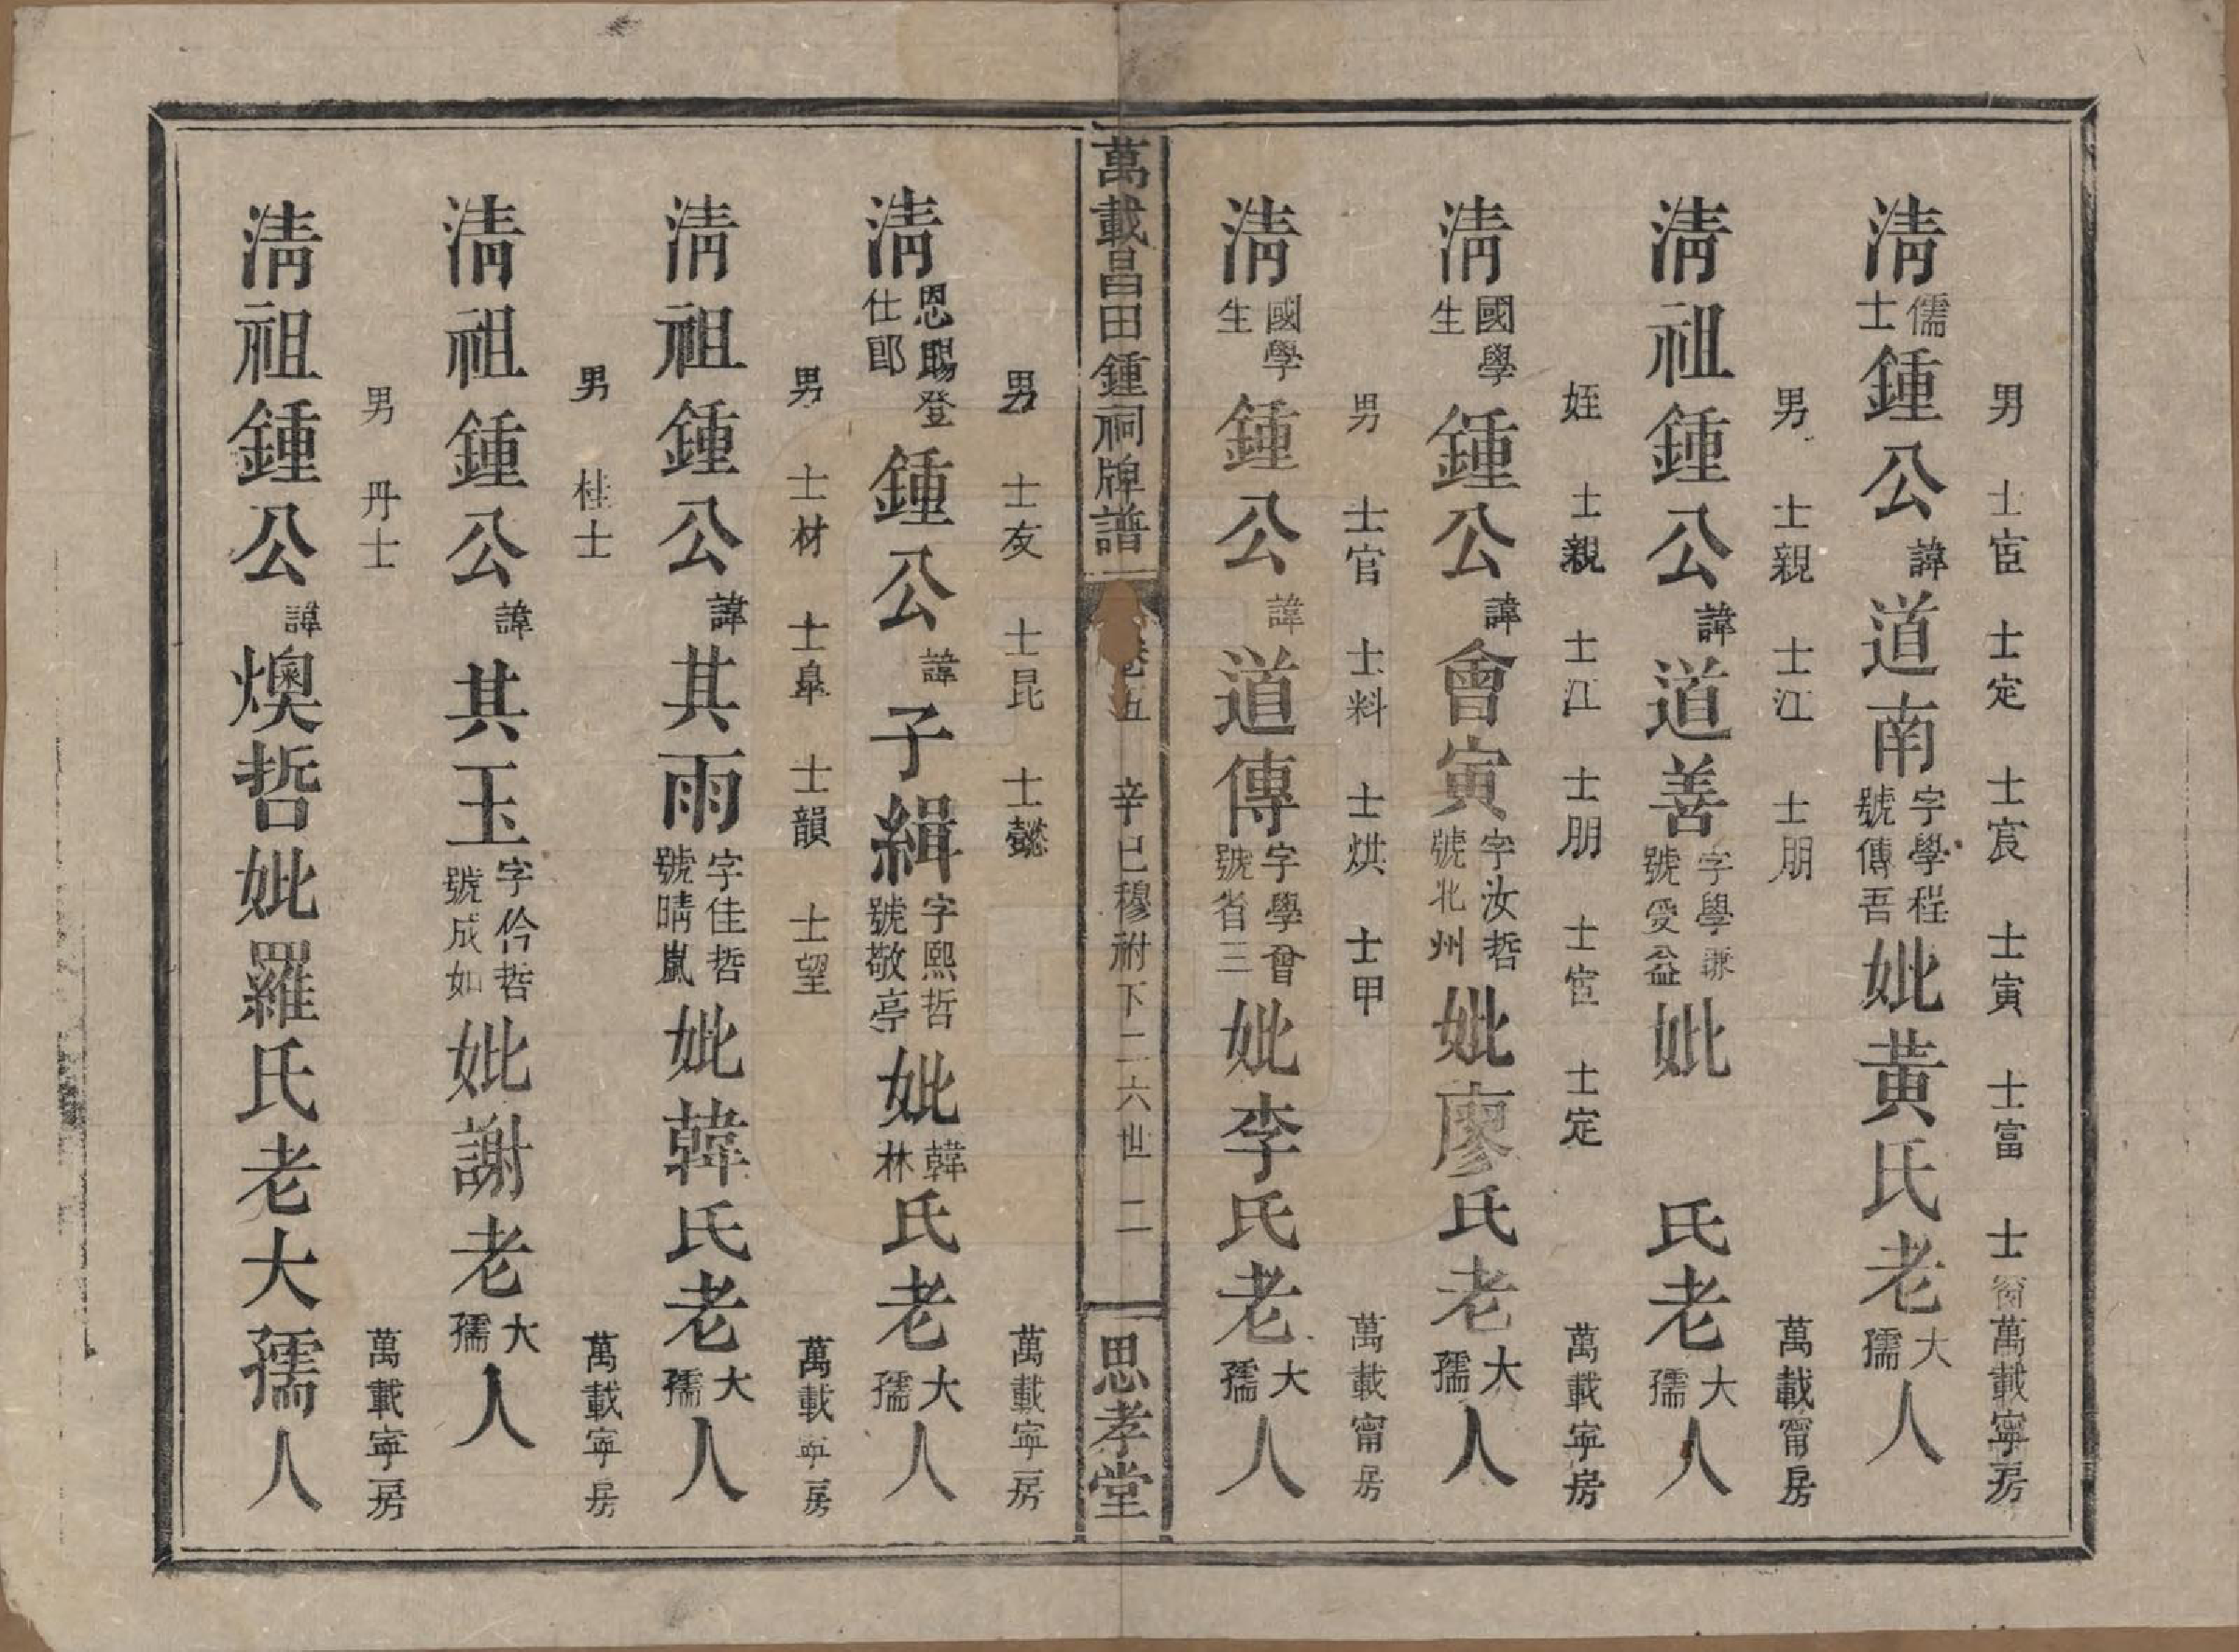 男　士宦　士定　士宸　士寅　士富　士　萬載寧房
清儒士鍾公諱道南字學程號傳吾妣黃氏老大孺人
男　士親　士江　士朋　萬載甯房
清祖鍾公諱道善字學謙號愛益妣　氏老大孺人
姪　士親　士江　士朋　士宦　士定　萬載寧房
清國學生鍾公諱會寅字汝哲號北州妣廖氏老大孺人
男　士官　士料　士烘　士甲　萬載甯房
清國學生鍾公諱道傳字學會號省三妣李氏老大孺人
萬載昌田鍾祠牌譜　卷五　辛巳穆祔下二六世　二　思孝堂
男　士友　士昆　士懿　萬載寧房
清恩賜登仕郎鍾公諱子緝字熙哲號敬亭妣韓林氏老大孺人
男　士材　士皐　士韻　士望　萬載寧房
清祖鍾公諱其雨字佳哲號晴嵐妣韓氏老大孺人
男　桂士　萬載寧房
清祖鍾公諱其玉字伶哲號成如妣謝老大孺人
男　丹士　萬載寧房
清祖鍾公諱燠哲妣羅氏老大孺人